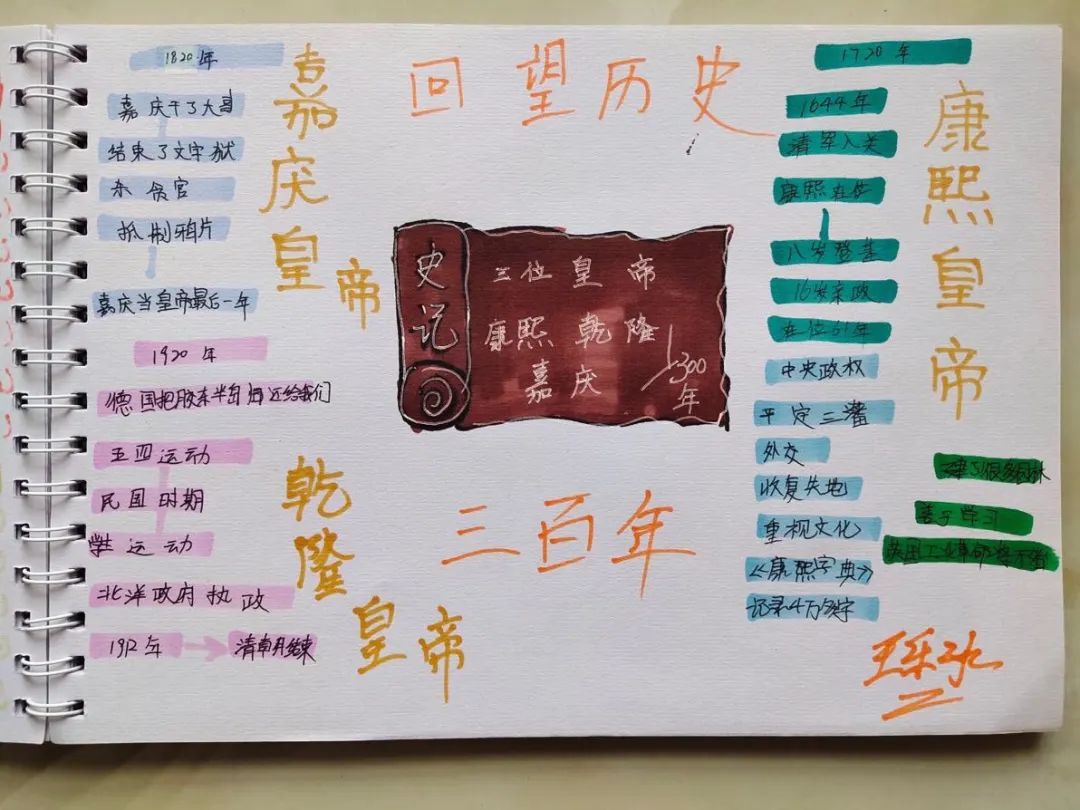 回望历史
1820年
嘉庆干了大事
结束了文字狱
杀贪官
抵制鸦片
嘉庆当皇帝最后一年
嘉庆皇帝
1920年
德国把胶东半岛归还给我们
五四运动
民国时期
学生运动
北洋政府执政
1912年
清朝结束
乾隆皇帝
史记
三位皇帝
康熙乾隆
嘉庆
300年
三百年
1720年
1644年
清军入关
康熙在位
八岁登基
16岁亲政
在位61年
中央政权
平定三藩
外交
收复失地
重视文化
《康熙字典》
记录4万多字
康熙皇帝
善于学习